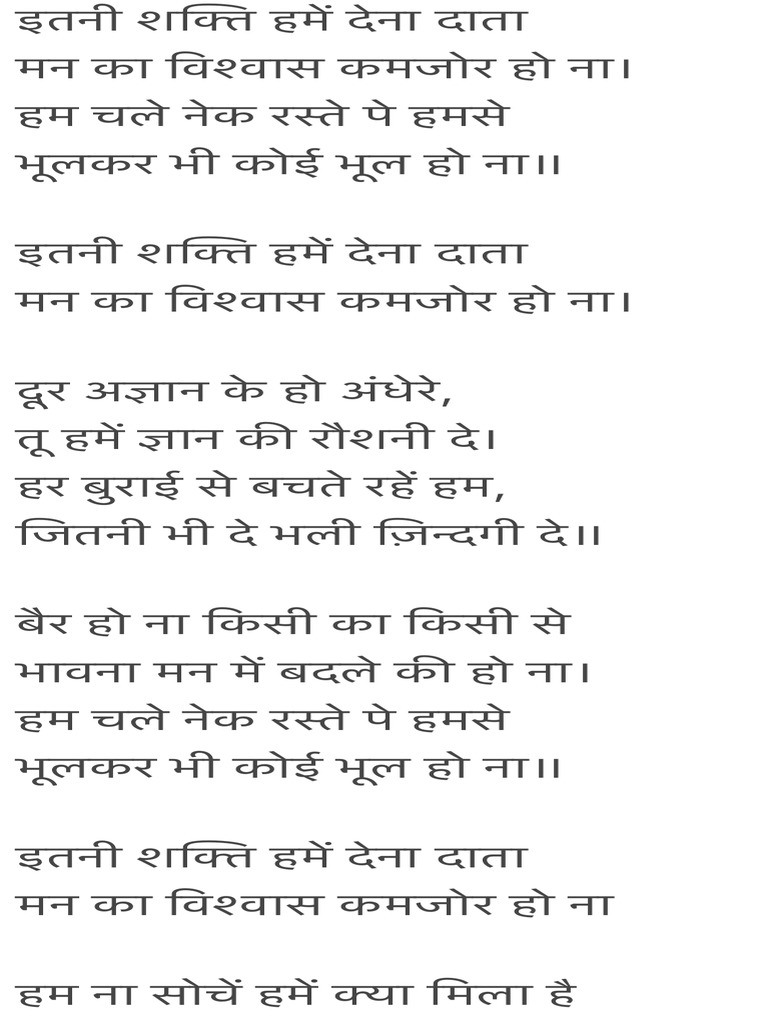 इतनी शक्ति हमें देना दाता
मन का विश्वास कमजोर हो ना।
हम चले नेक रस्ते पे हमसे
भूलकर भी कोई भूल हो ना।।
इतनी शक्ति हमें देना दाता
मन का विश्वास कमजोर हो ना।
दूर अज्ञान के हो अंधेरे,
तू हमें ज्ञान की रौशनी दे।
हर बुराई से बचते रहें हम,
जितनी भी दे भली ज़िन्दगी दे।।
बैर हो ना किसी का किसी से
भावना मन में बदले की हो ना।
हम चले नेक रस्ते पे हमसे
भूलकर भी कोई भूल हो ना।।
इतनी शक्ति हमें देना दाता
मन का विश्वास कमजोर हो ना
हम ना सोचें हमें क्या मिला है